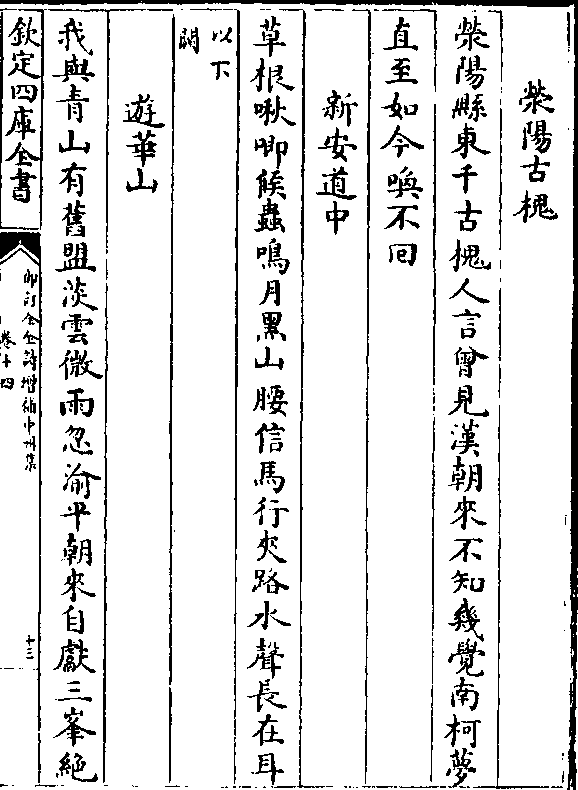 滎陽古槐
滎陽縣東千古槐人言曾見漢朝來不知幾覺南柯夢
直至如今喚不回
新安道中
草根啾唧候蟲鳴月黑山腰信馬行夾路水聲長在耳
以下
闕
遊華山
我與青山有舊盟淡雲微雨忽渝平朝來自獻三峯絶
欽定四庫全書
御訂全金詩增補中州集
卷十四
十三